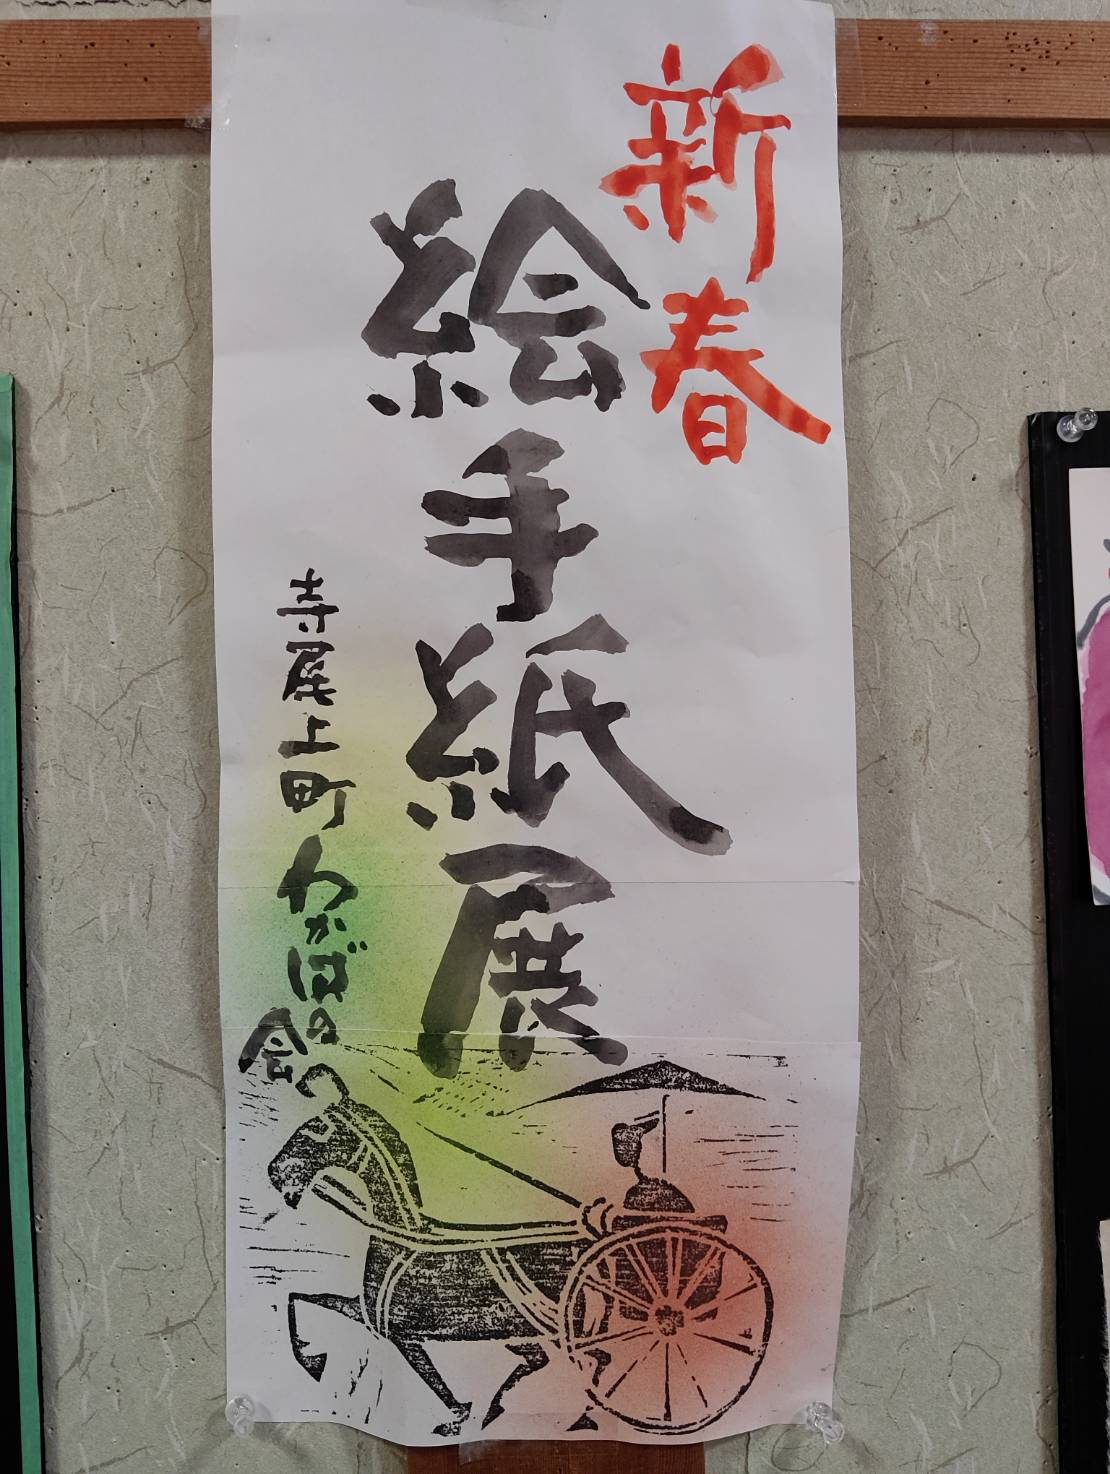 新春
絵手紙展
寺尾上町わかばの会